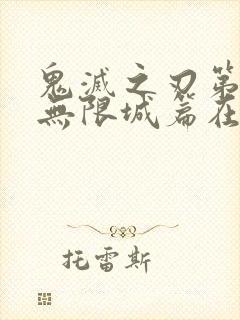 鬼滅之刃第
無限城篇在
托雷斯